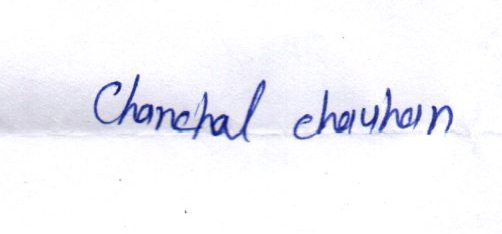 Chanchal chauhan